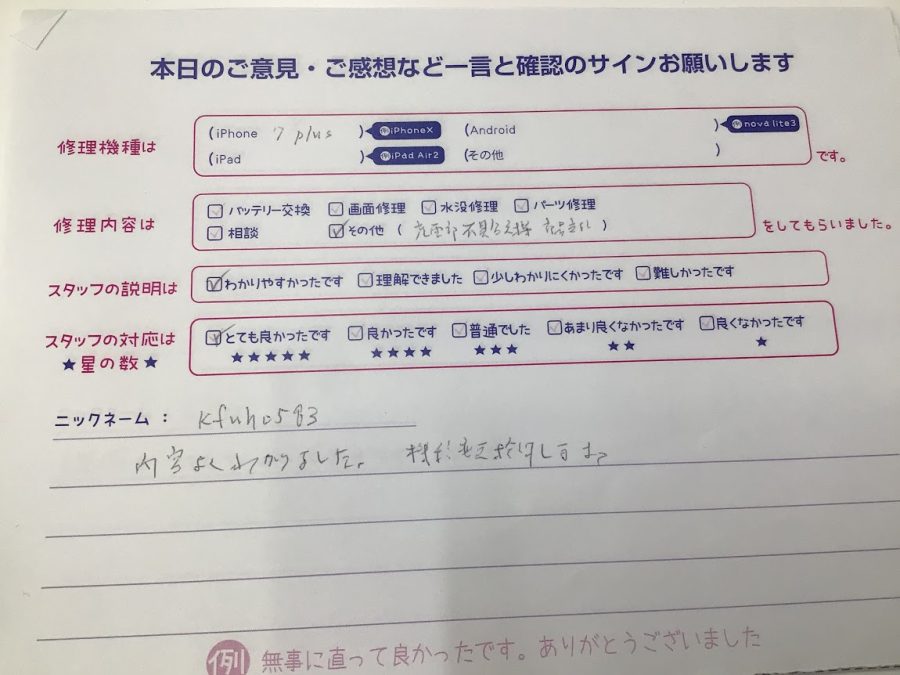 本日のご意見・ご感想など一言と確認のサインお願いします
修理機種は (iPhone 7 plus ) 例iPhoneX (Android ) 例nova lite3
(iPad ) 例iPad Air2 (その他 ) です。
修理内容は バッテリー交換 画面修理 水没修理 パーツ修理
相談 その他 ( ) をしてもらいました。
スタッフの説明は わかりやすかったです 理解できました 少しわかりにくかったです 難しかったです
スタッフの対応は とても良かったです 良かったです 普通でした あまり良くなかったです 良くなかったです
★星の数★ ★★★★★ ★★★★ ★★★ ★★ ★
ニックネーム: kfuho583
内容よくわかりました。
例 無事に直って良かったです。ありがとうございました